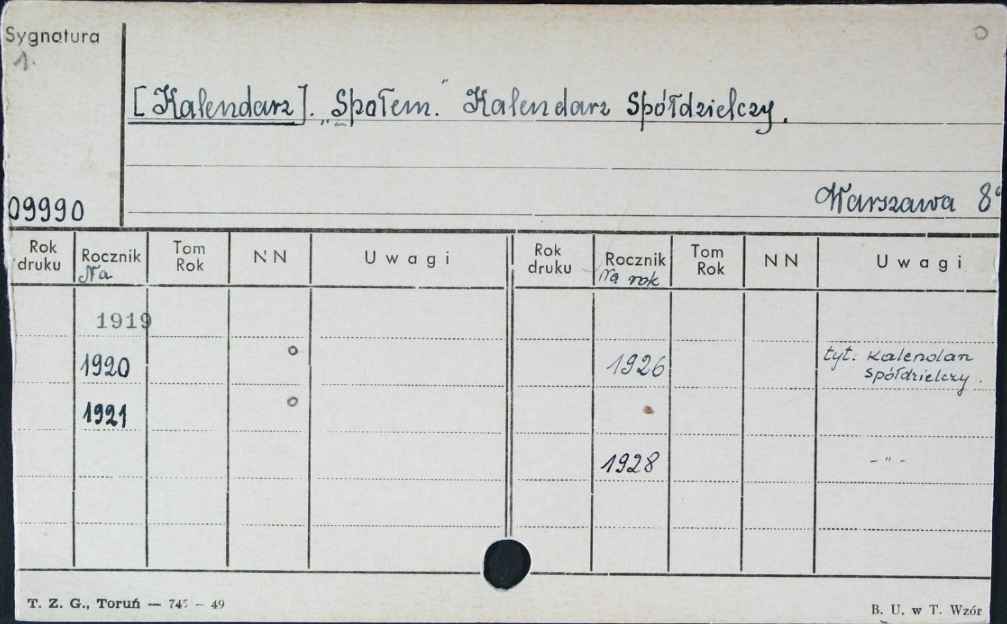 Sygnatura
1.
[Kalendarz]. „Społem." Kalendarz Spółdzielczy.
Warszawa 8°
09990
Rok druku Rocznik Na Tom Rok NN Uwagi Rok druku Rocznik Na rok Tom Rok NN Uwagi
1919
1920 o 1926 tyt. Kalendarz
spółdzielczy.
1921 o
1928 -"-
T. Z. G., Toruń — 747 — 49 B. U. w T. Wzór